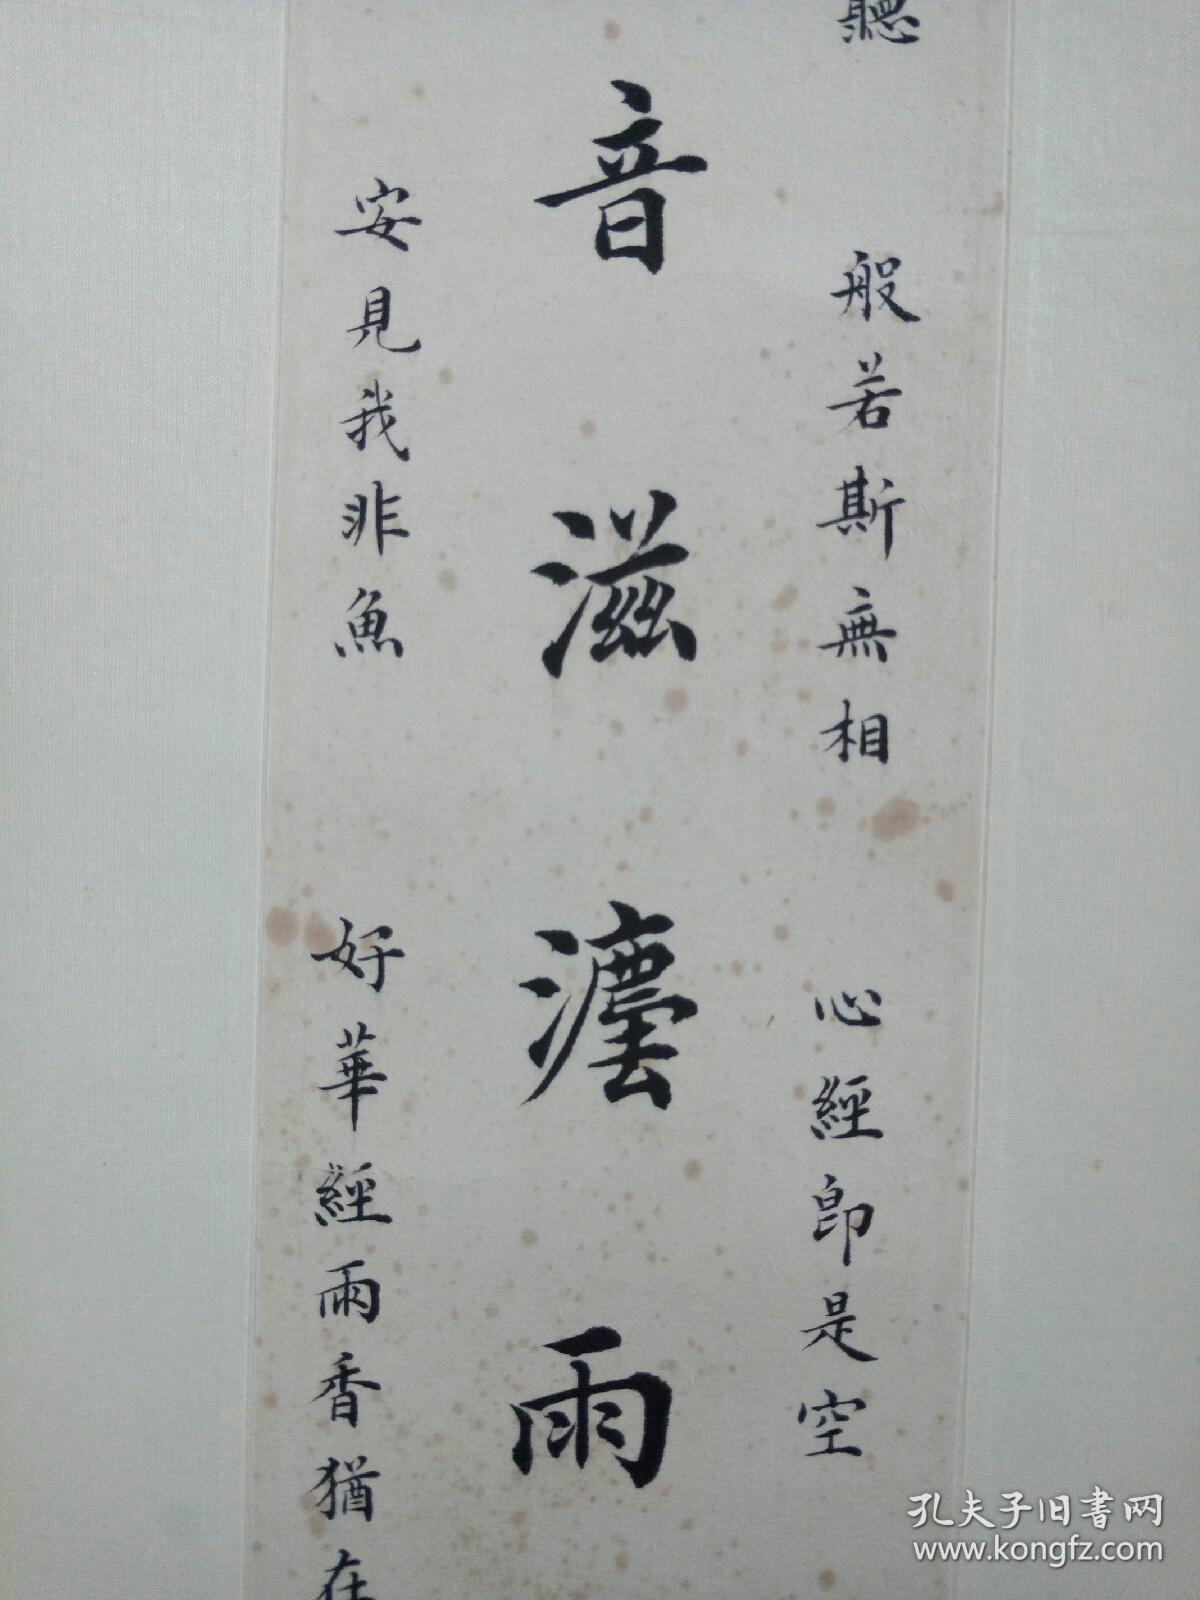 聽 般若斯無相 心經即是空
音滋灋雨
安見我非魚 好華經雨香猶在
孔夫子旧書网
www.kongfz.com